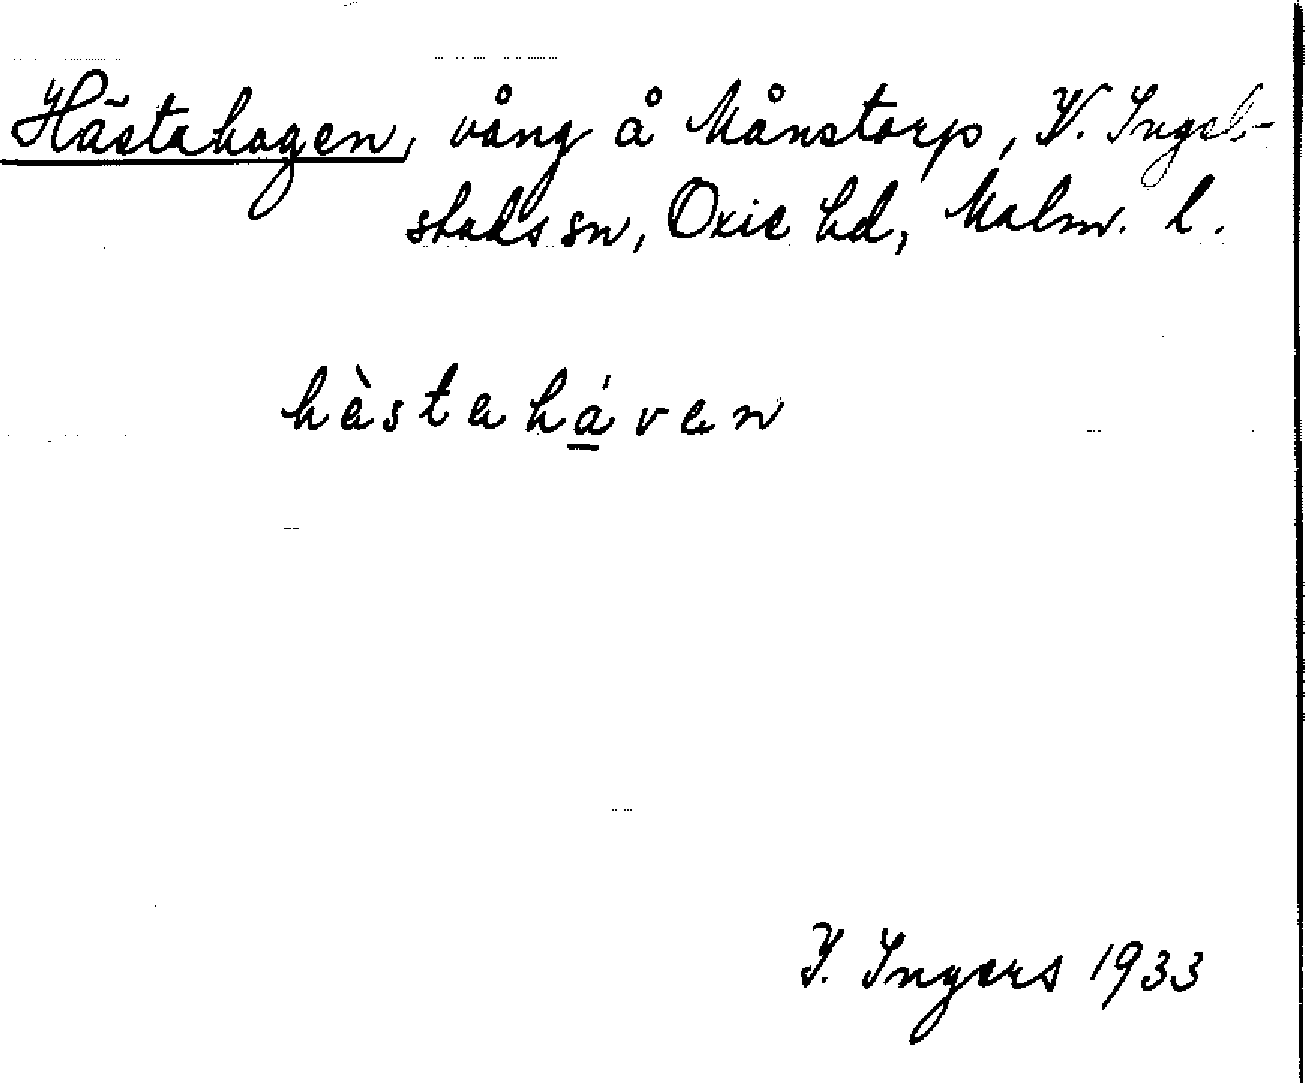 Hästahagen, vång å Månstorp, V. Ingel-
stads sn, Oxie hd, Malm. l.
hàstahá̱van
I. Ingers 1933